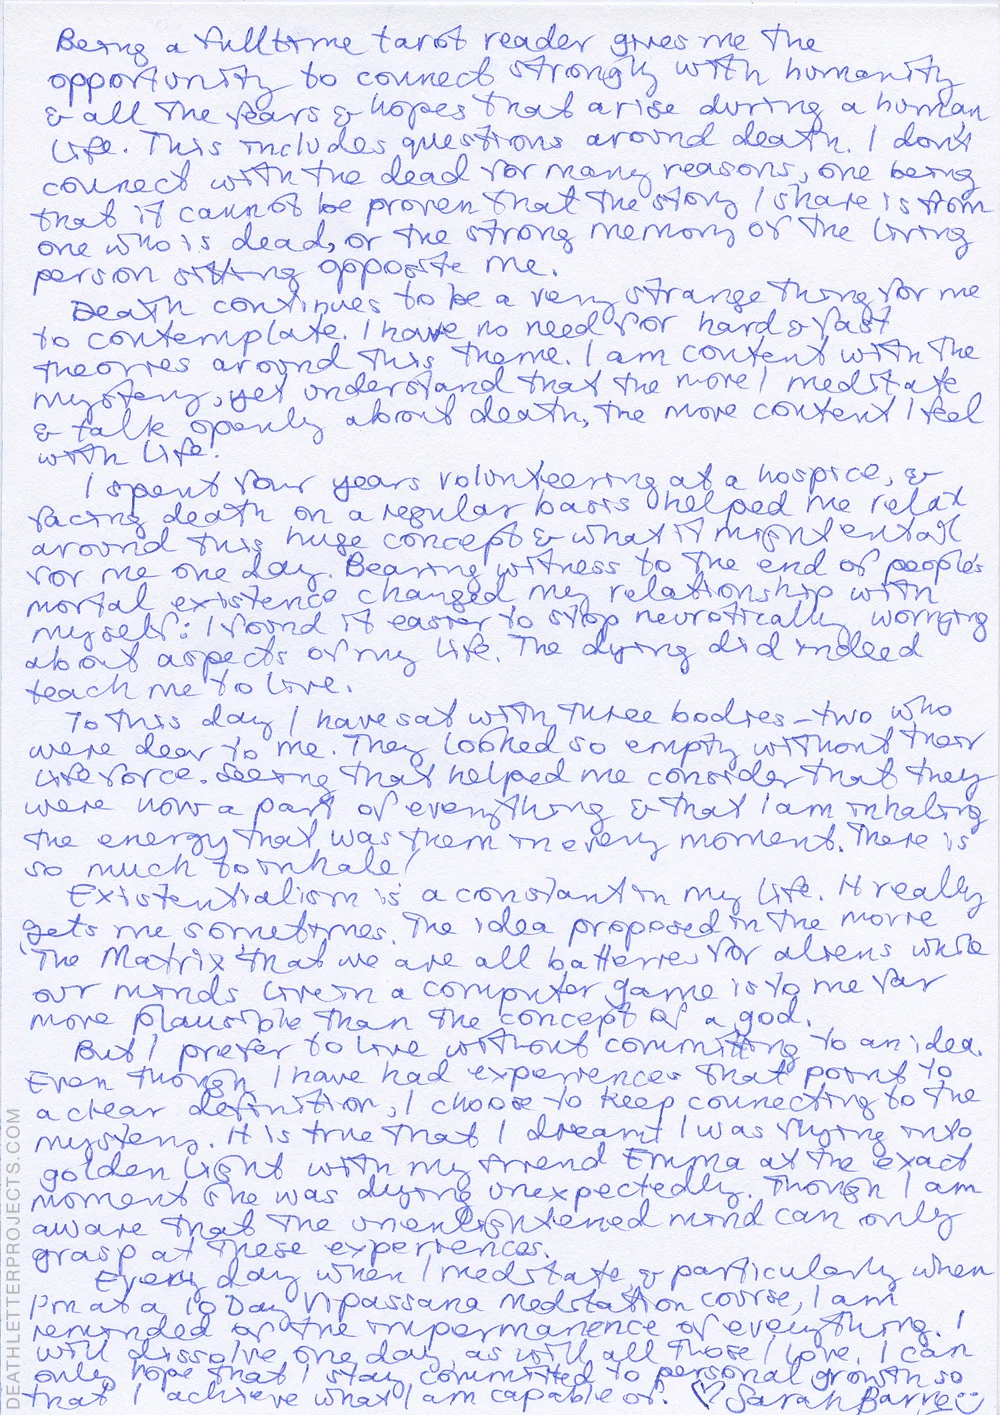 Being a fulltime tarot reader gives me the
opportunity to connect strongly with humanity
& all the fears & hopes that arise during a human
life. This includes questions around death. I don't
connect with the dead for many reasons, one being
that it cannot be proven that the story I share is from
one who is dead, or the strong memory of the living
person sitting opposite me.
Death continues to be a very strange thing for me
to contemplate. I have no need for hard & fast
theories around this theme. I am content with the
mystery, yet understand that the more I meditate
& talk openly about death, the more content I feel
with life!
I spent four years volunteering at a hospice, &
facing death on a regular basis helped me relax
around this huge concept & what it might entail
for me one day. Bearing witness to the end of people's
mortal existence changed my relationship with
myself: I found it easier to stop neurotically worrying
about aspects of my life. The dying did indeed
teach me to live.
To this day I have sat with three bodies - two who
were dear to me. They looked so empty without their
life force. Seeing that helped me consider that they
were now a part of everything & that I am inhaling
the energy that was them in every moment. There is
so much to inhale!
Existentialism is a constant in my life. It really
gets me sometimes. The idea proposed in the movie
'The Matrix' that we are all batteries for aliens while
our minds live in a computer game is to me far
more plausible than the concept of a god.
But I prefer to live without committing to an idea.
Even though I have had experiences that point to
a clear definition, I choose to keep connecting to the
mystery. It is true that I dreamt I was flying into
golden light with my friend Emma at the exact
moment she was dying unexpectedly. Though I am
aware that the unenlightened mind can only
grasp at these experiences.
Every day when I meditate, & particularly when
I'm at a 10 Day Vipassana meditation course, I am
reminded of the impermanence of everything. I
will dissolve one day, as will all those I love. I can
only hope that I stay committed to personal growth so
that I achieve what I am capable of. ♡ Sarah Barrie
DEATHLETTERPROJECTS.COM